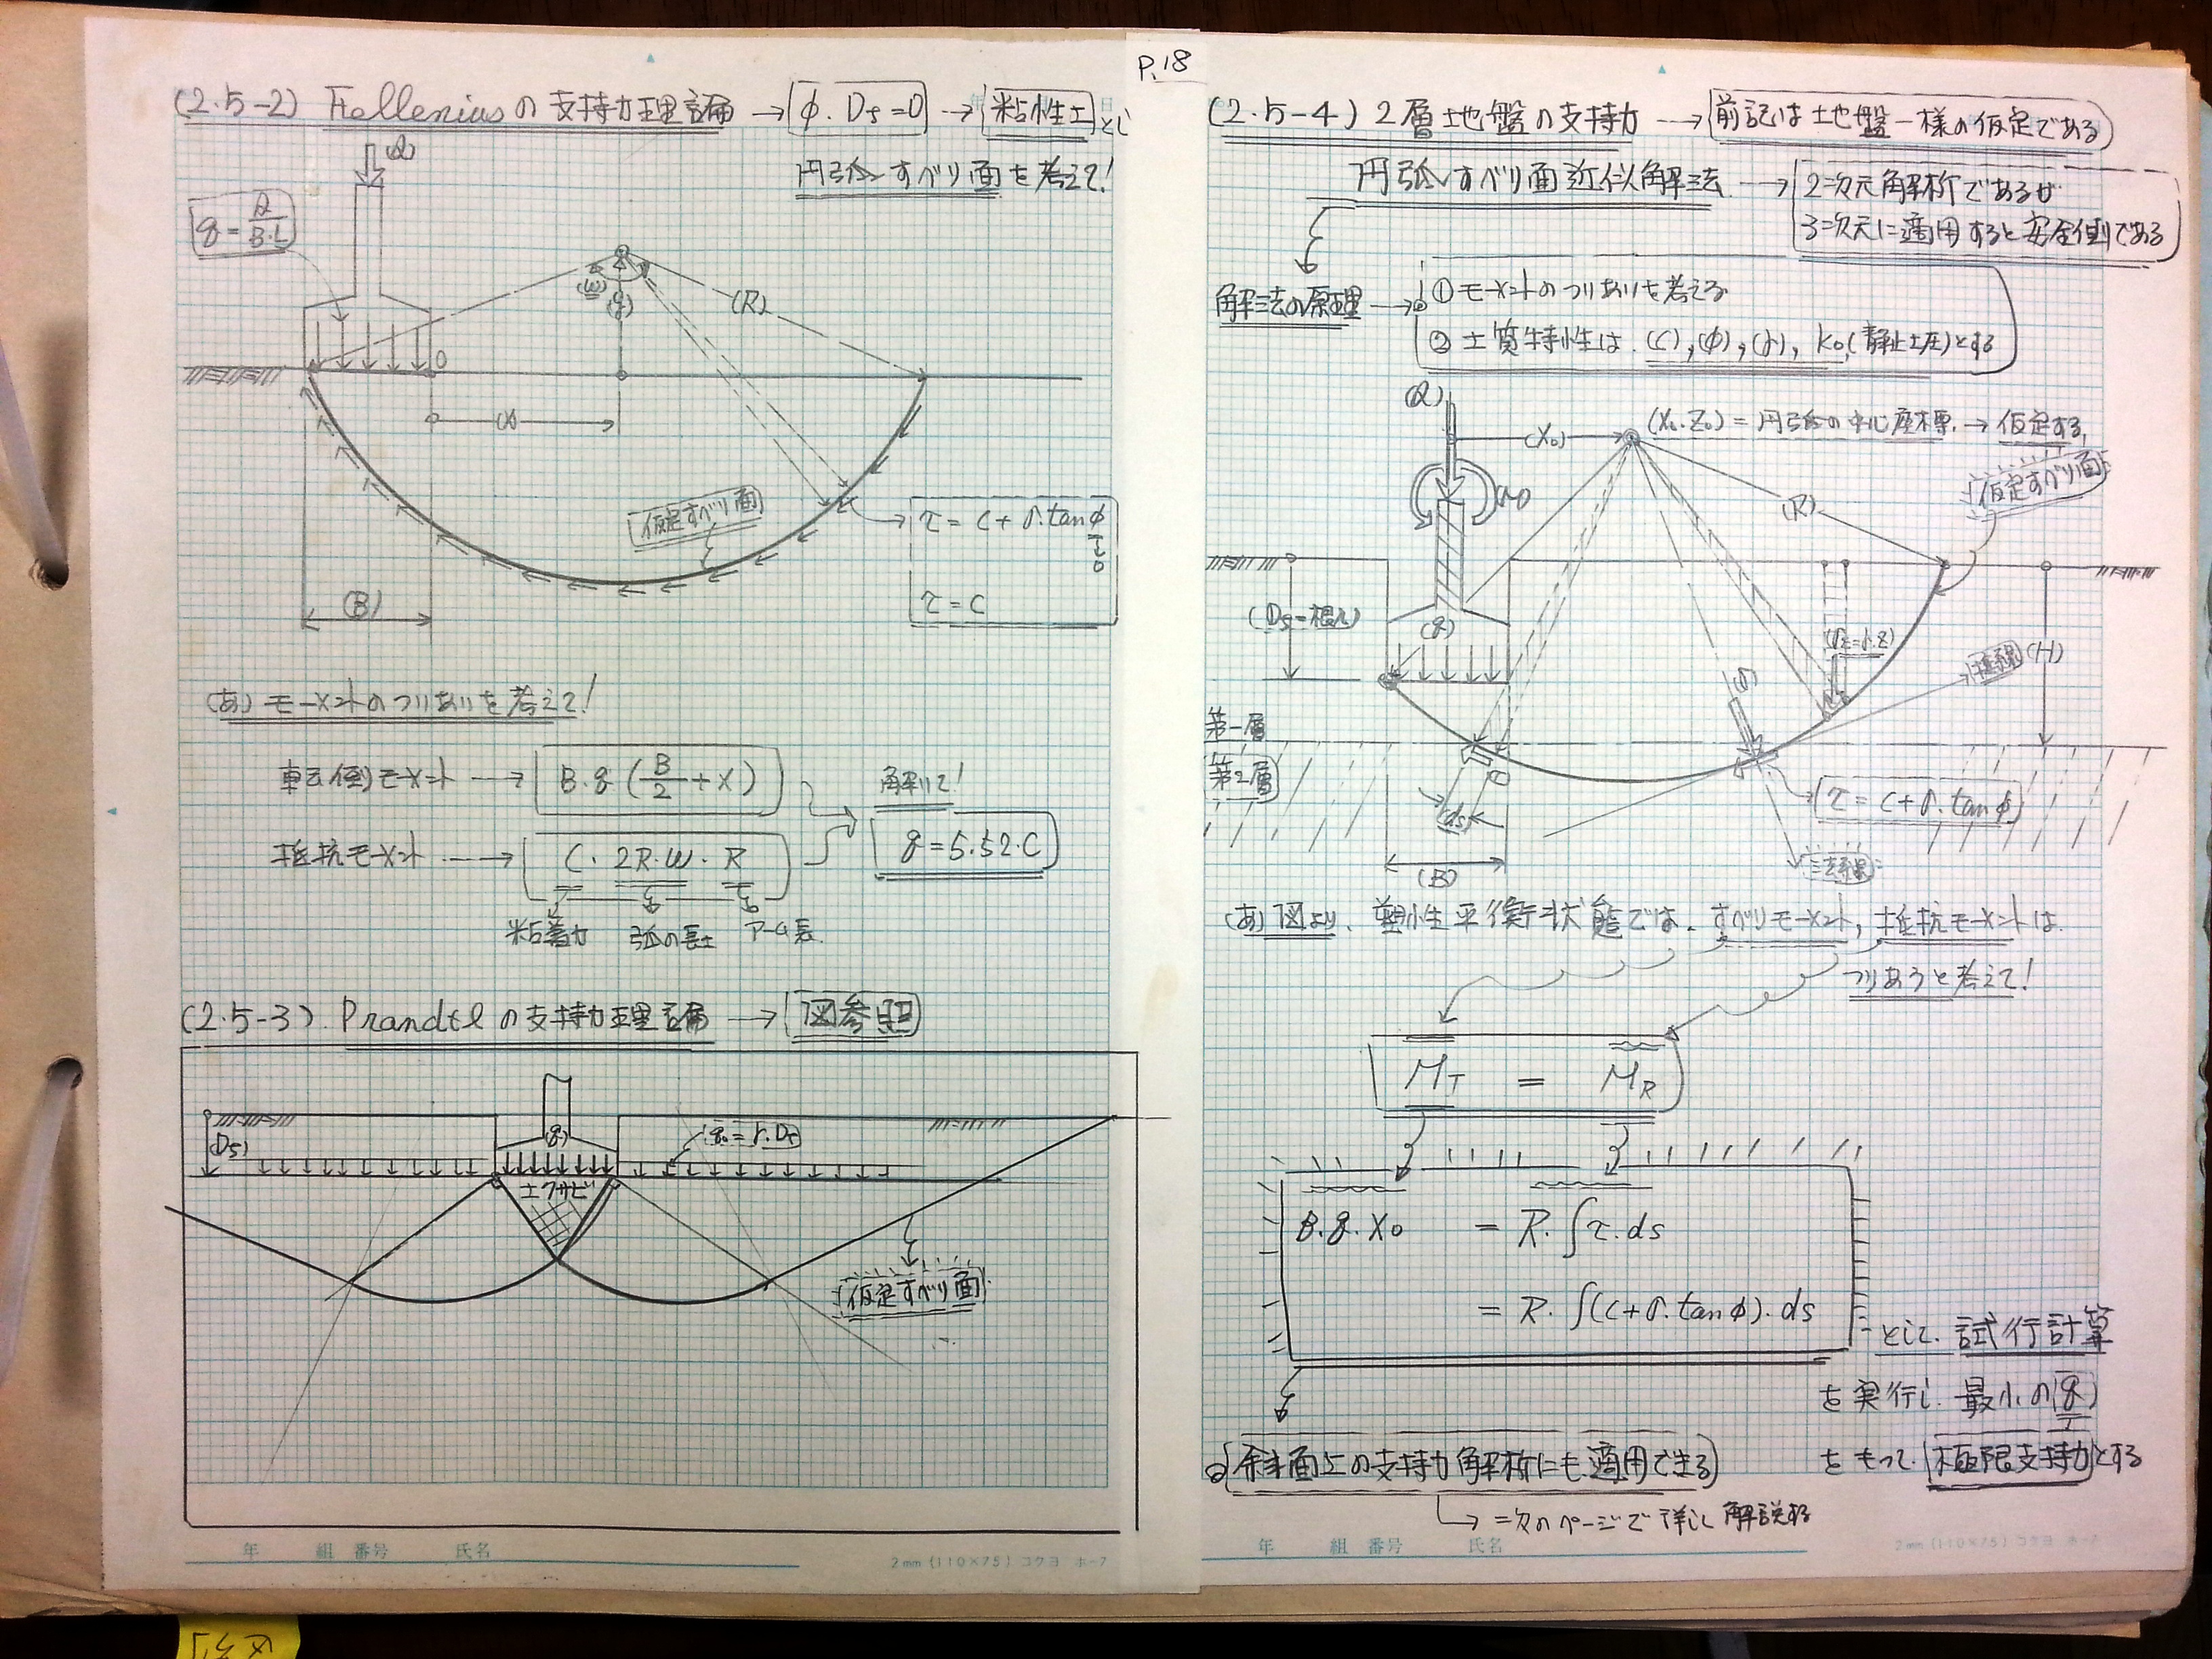 P.18
(2.5-2) Fellenius の支持力理論 → φ. Df = 0 → 粘性土とし
円弧すべり面を考えて!
(Q)
q = Q/B.L
(ω)
(R)
O
(X)
仮定すべり面
τ = C + σ.tan φ
0
τ = C
(B)
(あ) モーメントのつりあいを考えて!
転倒モーメント → B.q (B/2 + X)
抵抗モーメント → C. 2R.ω. R
粘着力 弧の長さ アーム長.
解いて!
q = 5.52.C
(2.5-3). Prandtl の支持力理論 → 図参照
(Df)
(q)
q₀ = γ.Df
土クサビ
仮定すべり面
年 組 番号 氏名
2mm (110×75) コクヨ ホ-7
(2.5-4) 2層地盤の支持力 → 前記は地盤一様の仮定である
円弧すべり面近似解法 → 2次元解析であるが
3次元に適用すると安全側である
解法の原理 → ① モーメントのつりあいを考える
② 土質特性は. (C), (φ), (γ), K₀(静止土圧)とする
(Q)
(X₀)
(X₀.Z₀) = 円弧の中心座標. → 仮定する.
仮定すべり面
(R)
(Df=根入)
(q)
(H)
接線
第一層
第2層
(ds)
(B)
τ = C + σ.tan φ
法線
(あ) 図より. 塑性平衡状態では. すべりモーメント, 抵抗モーメントは.
つりあうと考えて!
M_T = M_R
B.q.X₀ = R.∫τ.ds
= R.∫(C+σ.tan φ).ds
として. 試行計算
を実行し. 最小の(q)
をもって. 極限支持力とする
斜面上の支持力解析にも適用できる
→ 次のページで詳しく解説する
年 組 番号 氏名
2mm (110×75) コクヨ ホ-7